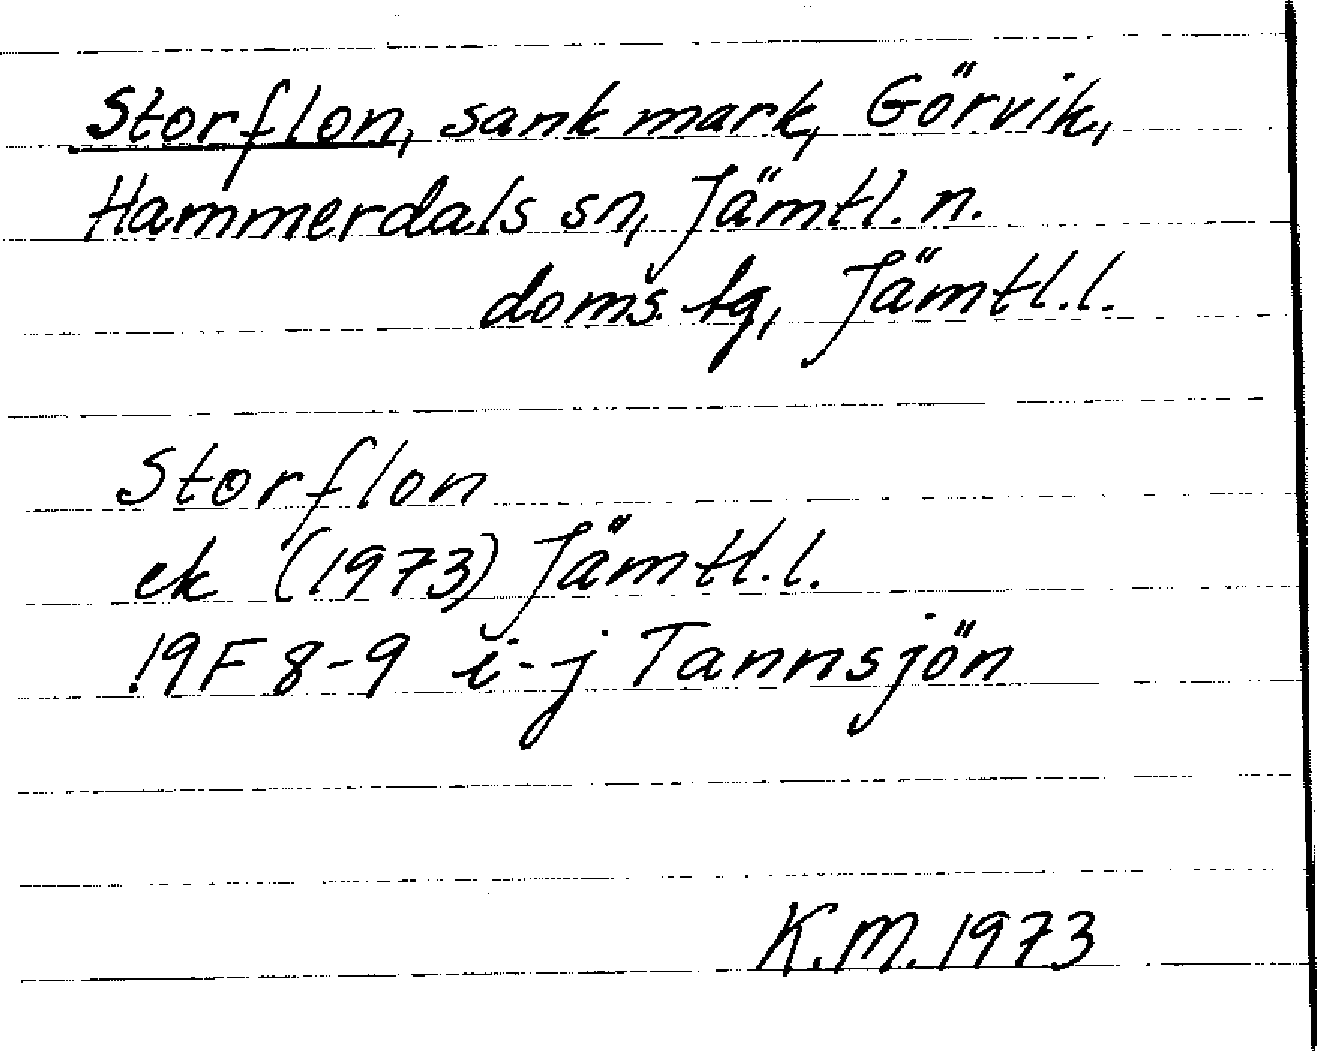 Storflon, sank mark, Görvik,
Hammerdals sn, Jämtl. n.
doms. tg, Jämtl. l.
Storflon
ek (1973) Jämtl. l.
19F 8-9 i-j Tannsjön
K.M. 1973